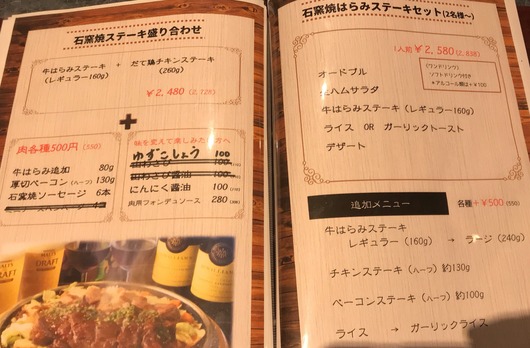 石窯焼ステーキ盛り合わせ
牛はらみステーキ + だて鶏チキンステーキ
(レギュラー160g) (260g)
¥2,480 (2,728)
+
肉各種500円 (550)
牛はらみ追加 80g
厚切ベーコン (ハーフ) 130g
石窯焼ソーセージ 6本
味を変えて楽しみたい方へ
ゆずこしょう 100
山わさび 100
山わさび醤油 100
にんにく醤油 100
肉用フォンデュソース 280
DRAFT
石窯焼はらみステーキセット(2名様〜)
1人前 ¥2,580 (2,838)
(ワンドリンク)
ソフトドリンク付き
*アルコール類は+¥100
オードブル
生ハムサラダ
牛はらみステーキ (レギュラー160g)
ライス OR ガーリックトースト
デザート
追加メニュー 各種+¥500 (550)
牛はらみステーキ
レギュラー (160g) → ラージ (240g)
チキンステーキ (ハーフ) 約130g
ベーコンステーキ (ハーフ) 約100g
ライス → ガーリックライス